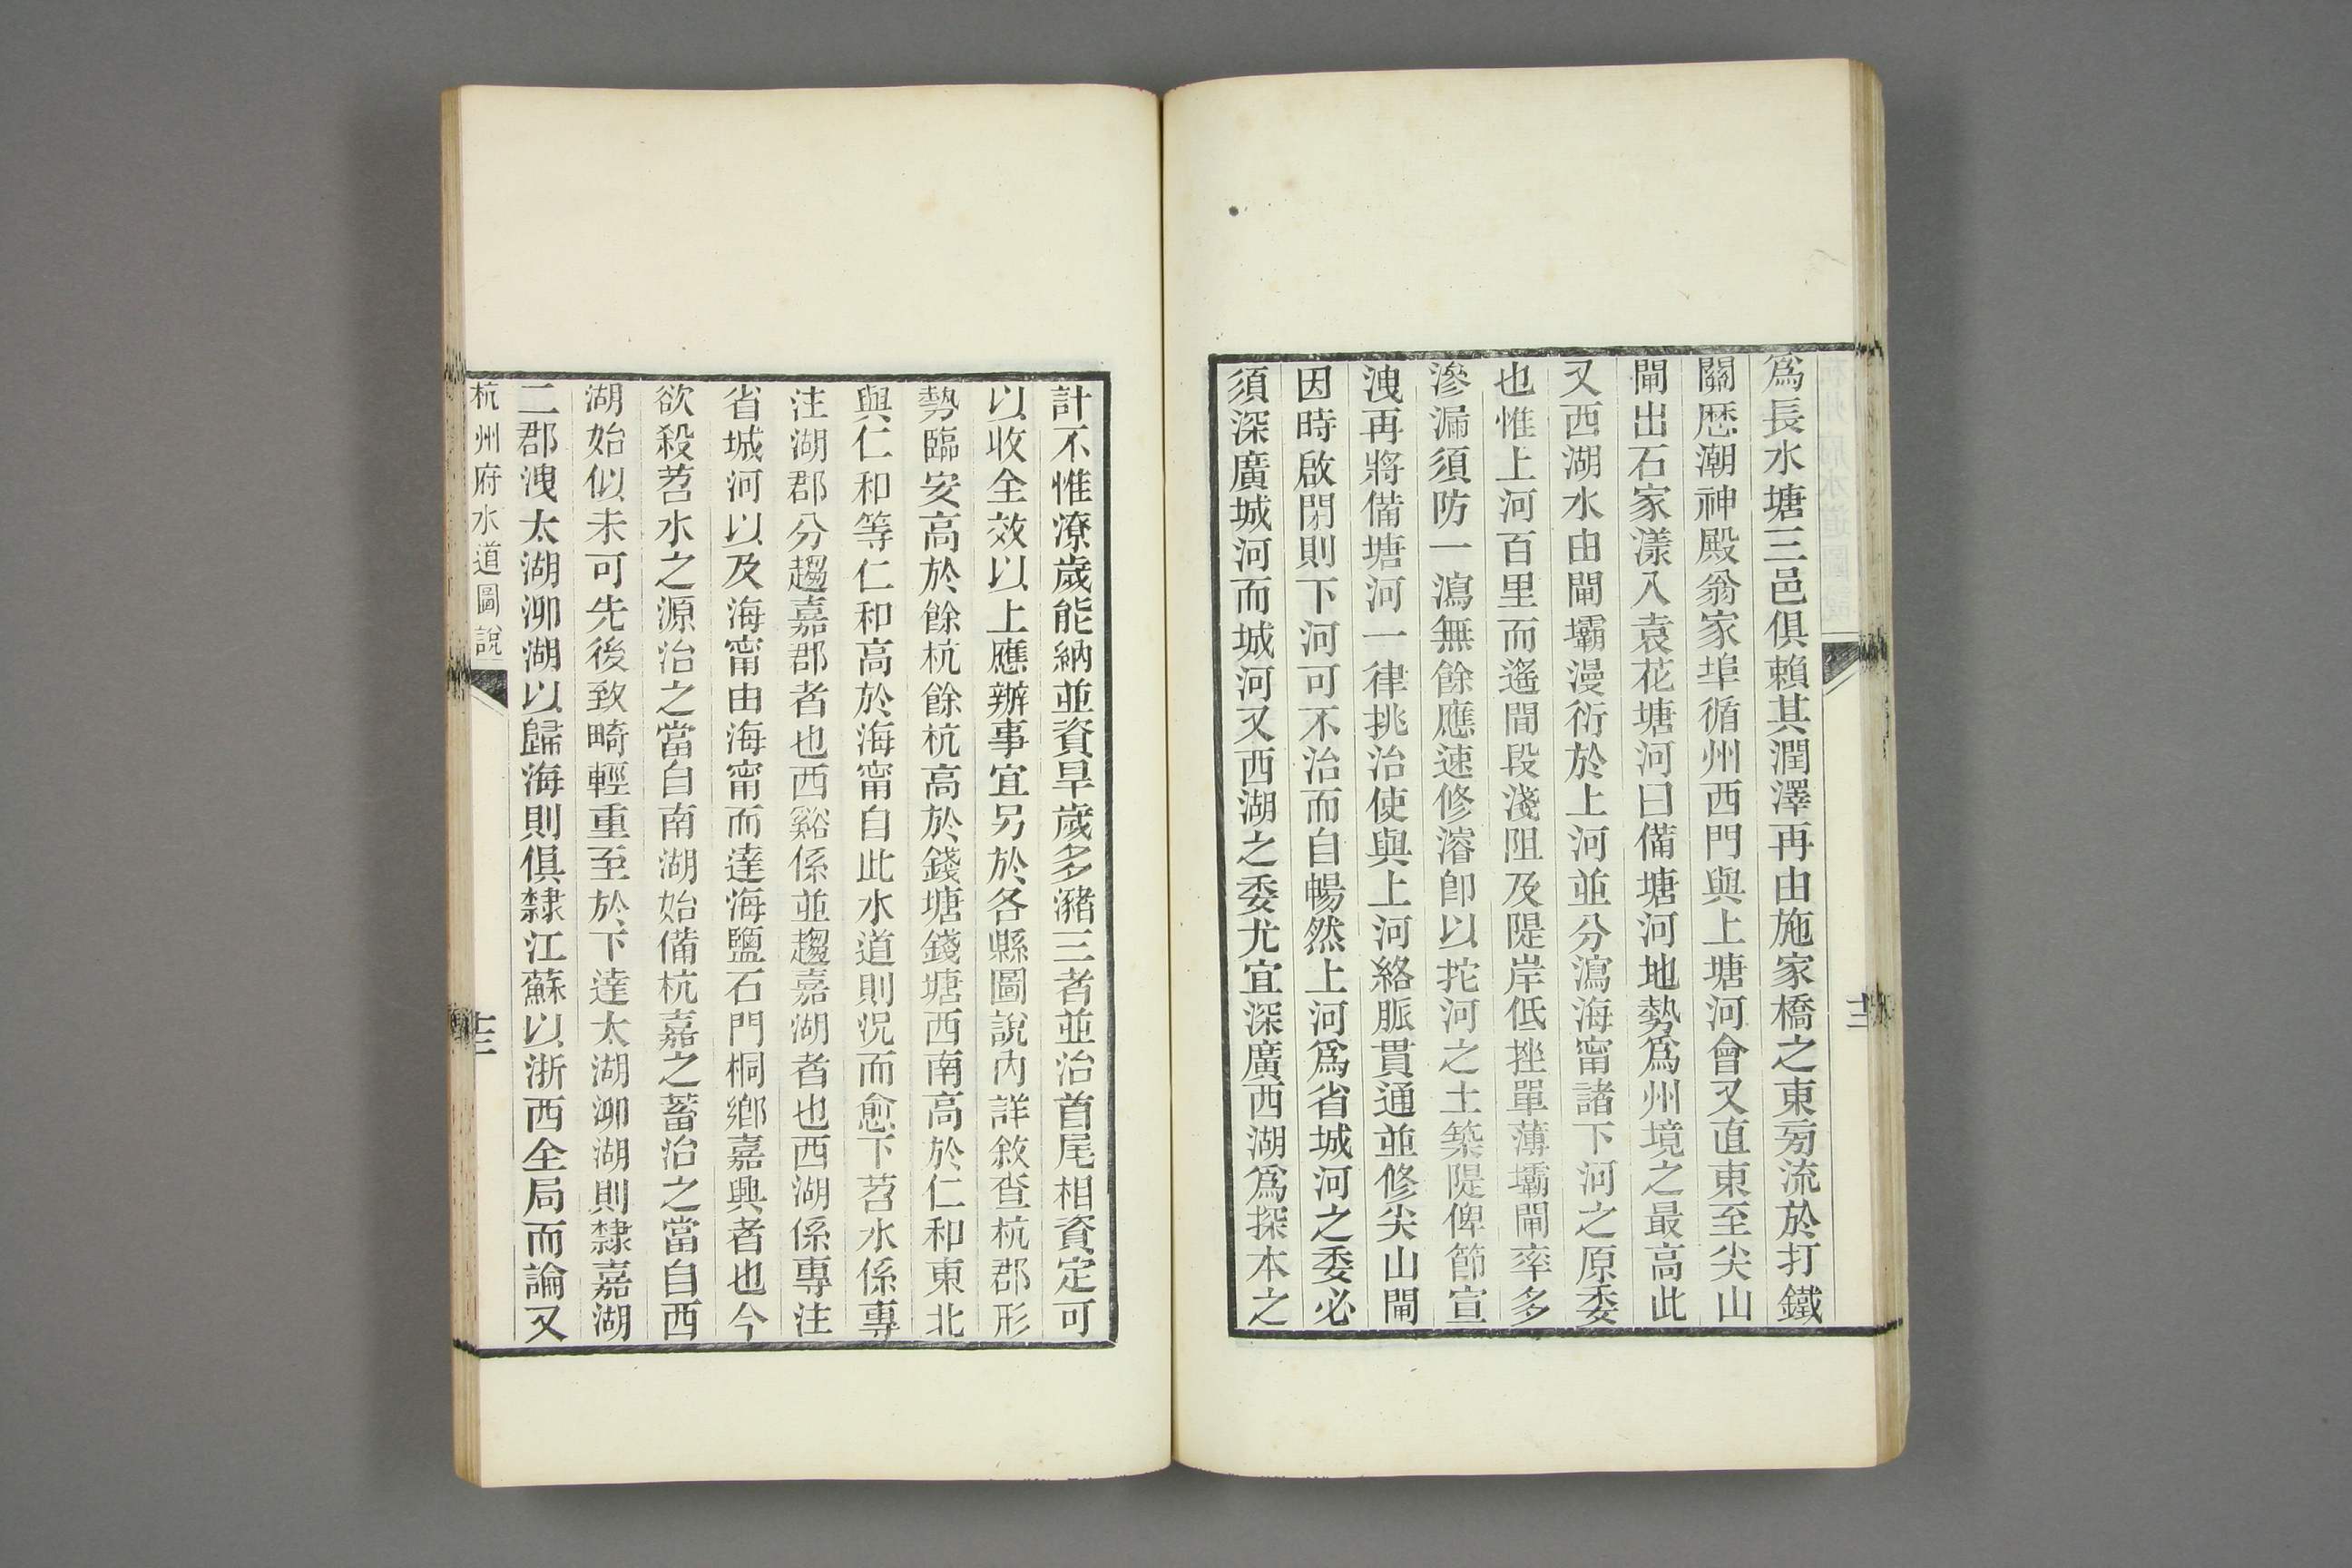 爲長水塘三邑俱賴其潤澤再由施家橋之東㫄流於打鐵
關歴潮神殿翁家埠循州西門與上塘河會又直東至尖山
閘出石家漾入袁花塘河曰備塘河地勢爲州境之最高此
又西湖水由閘壩漫衍於上河並分瀉海甯諸下河之原委
也惟上河百里而遙間段淺阻及隄岸低挫單薄壩閘率多
滲漏須防一瀉無餘應速修濬卽以挖河之土築隄俾節宣
洩再將備塘河一律挑治使與上河絡脈貫通並修尖山閘
因時啟閉則下河可不治而自暢然上河爲省城河之委必
須深廣城河而城河又西湖之委尤宜深廣西湖爲探本之
計不惟潦歲能納並資旱歲多瀦三者並治首尾相資定可
以收全效以上應辦事宜另於各縣圖說內詳敘查杭郡形
勢臨安高於餘杭餘杭高於錢塘錢塘西南高於仁和東北
與仁和等仁和高於海甯自此水道則况而愈下苕水係專
注湖郡分趨嘉郡者也西谿係並趨嘉湖者也西湖係專注
省城河以及海甯由海甯而達海鹽石門桐鄉嘉興者也今
欲殺苕水之源治之當自南湖始備杭嘉之蓄治之當自西
湖始似未可先後致畸輕重至於下達太湖泖湖則隸嘉湖
二郡洩太湖泖湖以歸海則俱隸江蘇以浙西全局而論又
杭州府水道圖說
十三